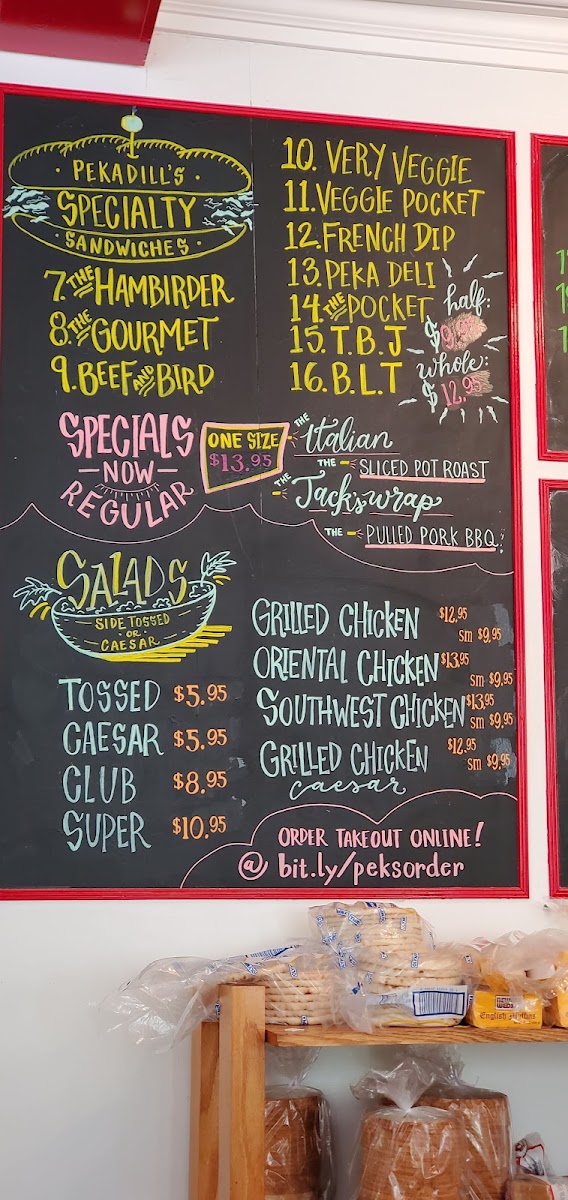 PEKADILL'S
SPECIALTY
SANDWICHES
7. THE HAMBIRDER
8. THE GOURMET
9. BEEF AND BIRD
10. VERY VEGGIE
11. VEGGIE POCKET
12. FRENCH DIP
13. PEKA DELI
14. THE POCKET
15. T.B.J
16. B.L.T
half:
whole:
$12.95
SPECIALS
NOW
REGULAR
ONE SIZE
$13.95
THE Italian
THE SLICED POT ROAST
THE Jack's wrap
THE PULLED PORK BBQ
SALADS
SIDE TOSSED
OR
CAESAR
TOSSED $5.95
CAESAR $5.95
CLUB $8.95
SUPER $10.95
GRILLED CHICKEN $12.95
sm $9.95
ORIENTAL CHICKEN $13.95
sm $9.95
SOUTHWEST CHICKEN $13.95
sm $9.95
GRILLED CHICKEN $12.95
caesar sm $9.95
ORDER TAKEOUT ONLINE!
@ bit.ly/peksorder
English Muffins